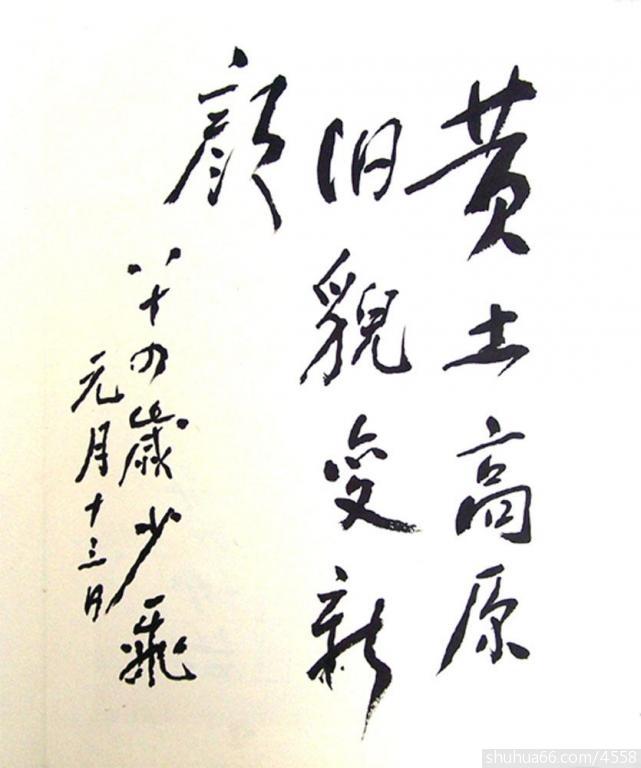 黄土高原
旧貌变新
颜
八十四岁少飛
元月十三日
shuhua66.com/4558